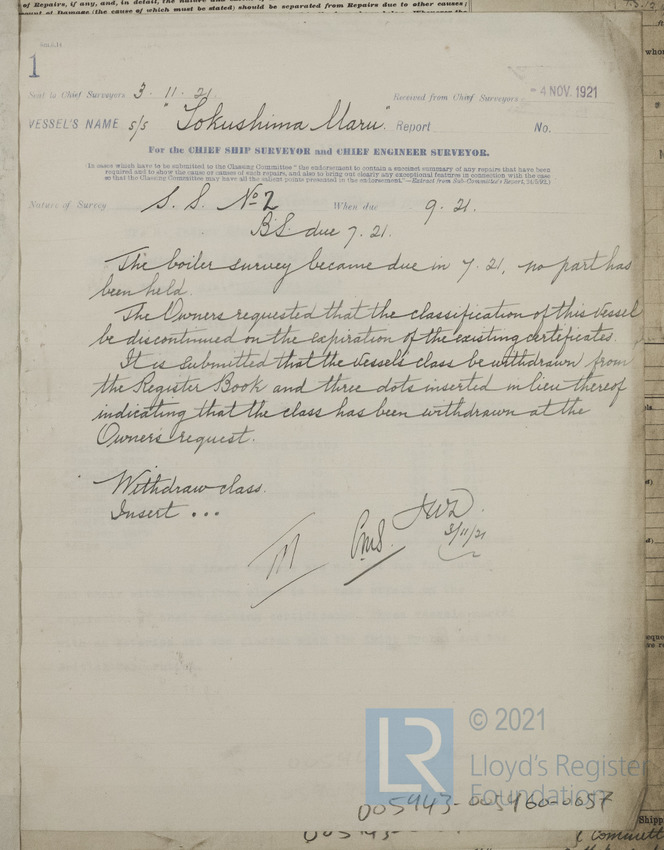 of Repairs, if any, and, in detail, the nature and
ount of Damage (the cause of which must be stated) should be separated from Repairs due to other causes;
1
Sent to Chief Surveyors 3. 11. 21. Received from Chief Surveyors - 4 NOV. 1921
VESSEL'S NAME s/s "Tokushima Maru." Report No.
For the CHIEF SHIP SURVEYOR and CHIEF ENGINEER SURVEYOR.
(In cases which have to be submitted to the Classing Committee "the endorsement to contain a succinct summary of any repairs that have been
required and to show the cause or causes of such repairs, and also to bring out clearly any exceptional features in connection with the case
so that the Classing Committee may have all the salient points presented in the endorsement."—Extract from Sub-Committee's Report,
Nature of Survey S. S. No 2 When due 9. 21.
BS. due 7. 21.
The boiler survey became due in 7. 21, no part has
been held.
The Owners requested that the classification of this vessel
be discontinued on the expiration of the existing certificates.
It is submitted that the vessel's class be withdrawn from
the Register Book and three dots inserted in lieu thereof
indicating that the class has been withdrawn at the
Owners request.
Withdraw class.
Insert ...
3/11/21
LR
© 2021
Lloyd's Register
Foundation
005443-005460-0657